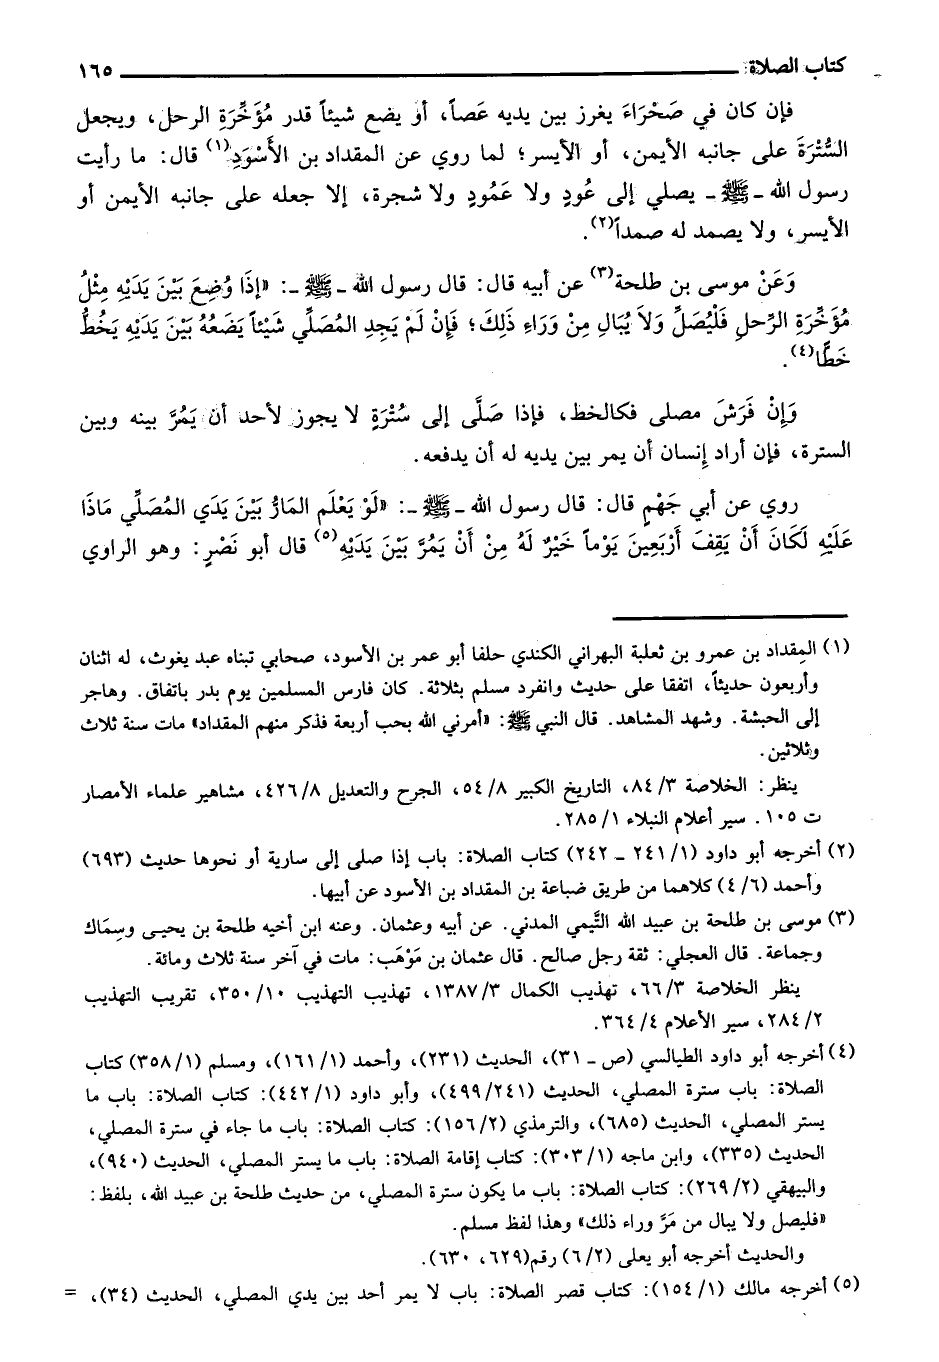 كتاب الصلاة ١٦٥
فإن كان في صَحْرَاءَ يغرز بين يديه عَصاً، أو يضع شيئاً قدر مُؤَخِّرَةِ الرحل، ويجعل
السُّتْرَةَ على جانبه الأيمن، أو الأيسر؛ لما روي عن المقداد بن الأَسْوَدِ(١) قال: ما رأيت
رسول الله ـ ﷺ ـ يصلي إلى عُودٍ ولا عَمُودٍ ولا شجرة، إلا جعله على جانبه الأيمن أو
الأيسر، ولا يصمد له صمداً(٢).
وَعَنْ موسى بن طلحة(٣) عن أبيه قال: قال رسول الله ـ ﷺ ـ: «إذَا وُضِعَ بَيْنَ يَدَيْهِ مِثْلُ
مُؤَخِّرَةِ الرَّحلِ فَلْيُصَلِّ وَلاَ يُبَالِ مِنْ وَرَاءِ ذَلِكَ؛ فَإِنْ لَمْ يَجِدِ المُصَلِّي شَيْئاً يَضَعُهُ بَيْنَ يَدَيْهِ يَخُطُّ
خَطًّا(٤).
وَإِنْ فَرَشَ مصلى فكالخط، فإذا صَلَّى إلى سُتْرَةٍ لا يجوز لأحد أن يَمُرَّ بينه وبين
السترة، فإن أراد إنسان أن يمر بين يديه له أن يدفعه.
روي عن أبي جَهْمٍ قال: قال رسول الله ـ ﷺ ـ: «لَوْ يَعْلَم المَارُّ بَيْنَ يَدَي المُصَلِّي مَاذَا
عَلَيْهِ لَكَانَ أَنْ يَقِفَ أَرْبَعِينَ يَوْماً خَيْرٌ لَهُ مِنْ أَنْ يَمُرَّ بَيْنَ يَدَيْهِ(٥) قال أبو نَصْرٍ: وهو الراوي
(١) المِقداد بن عمرو بن ثعلبة البهراني الكندي حلفا أبو عمر بن الأسود، صحابي تبناه عبد يغوث، له اثنان
وأربعون حديثاً، اتفقا على حديث وانفرد مسلم بثلاثة. كان فارس المسلمين يوم بدر باتفاق. وهاجر
إلى الحبشة. وشهد المشاهد. قال النبي ﷺ: «أمرني الله بحب أربعة فذكر منهم المقداد» مات سنة ثلاث
وثلاثين.
ينظر: الخلاصة ٣/ ٨٤، التاريخ الكبير ٨/ ٥٤، الجرح والتعديل ٨/ ٤٢٦، مشاهير علماء الأمصار
ت ١٠٥. سير أعلام النبلاء ١/ ٢٨٥.
(٢) أخرجه أبو داود (١/ ٢٤١ ـ ٢٤٢) كتاب الصلاة: باب إذا صلى إلى سارية أو نحوها حديث (٦٩٣)
وأحمد (٤/٦) كلاهما من طريق ضباعة بن المقداد بن الأسود عن أبيها.
(٣) موسى بن طلحة بن عبيد الله التَّيمي المدني. عن أبيه وعثمان. وعنه ابن أخيه طلحة بن يحيى وسِمَاك
وجماعة. قال العجلي: ثقة رجل صالح. قال عثمان بن مَوْهَب: مات في آخر سنة ثلاث ومائة.
ينظر الخلاصة ٣/ ٦٦، تهذيب الكمال ٣/ ١٣٨٧، تهذيب التهذيب ١٠/ ٣٥٠، تقريب التهذيب
٢/ ٢٨٤، سير الأعلام ٤/ ٣٦٤.
(٤) أخرجه أبو داود الطيالسي (ص ـ ٣١)، الحديث (٢٣١)، وأحمد (١/ ١٦١)، ومسلم (١/ ٣٥٨) كتاب
الصلاة: باب سترة المصلي، الحديث (٢٤١/ ٤٩٩)، وأبو داود (١/ ٤٤٢): كتاب الصلاة: باب ما
يستر المصلي، الحديث (٦٨٥)، والترمذي (٢/ ١٥٦): كتاب الصلاة: باب ما جاء في سترة المصلي،
الحديث (٣٣٥)، وابن ماجه (١/ ٣٠٣): كتاب إقامة الصلاة: باب ما يستر المصلي، الحديث (٩٤٠)،
والبيهقي (٢/ ٢٦٩): كتاب الصلاة: باب ما يكون سترة المصلي، من حديث طلحة بن عبيد الله، بلفظ:
«فليصل ولا يبال من مَرَّ وراء ذلك» وهذا لفظ مسلم.
والحديث أخرجه أبو يعلى (٢/ ٦) رقم(٦٢٩، ٦٣٠).
(٥) أخرجه مالك (١/ ١٥٤): كتاب قصر الصلاة: باب لا يمر أحد بين يدي المصلي، الحديث (٣٤)، =